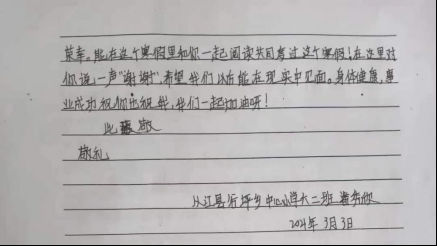 荣幸。能在这个寒假里和你一起阅读共同度过这个寒假！在这里对
你说一声“谢谢”，希望我们以后能在现实中见面。身体健康，事
业成功祝你也祝我，我们一起加油呀！
此致敬
敬礼
从江县斤坪乡中心小学六二班
2021年3月3日